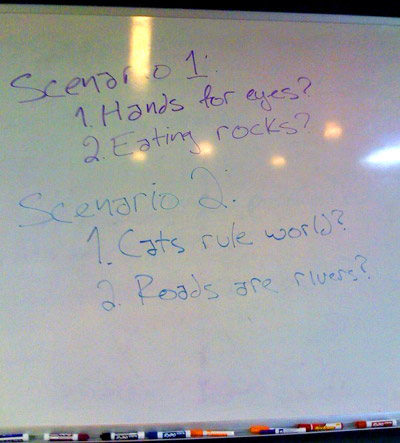 Scenario 1:
1. Hands for eyes?
2. Eating rocks?
Scenario 2:
1. Cats rule world?
2. Roads are rivers?